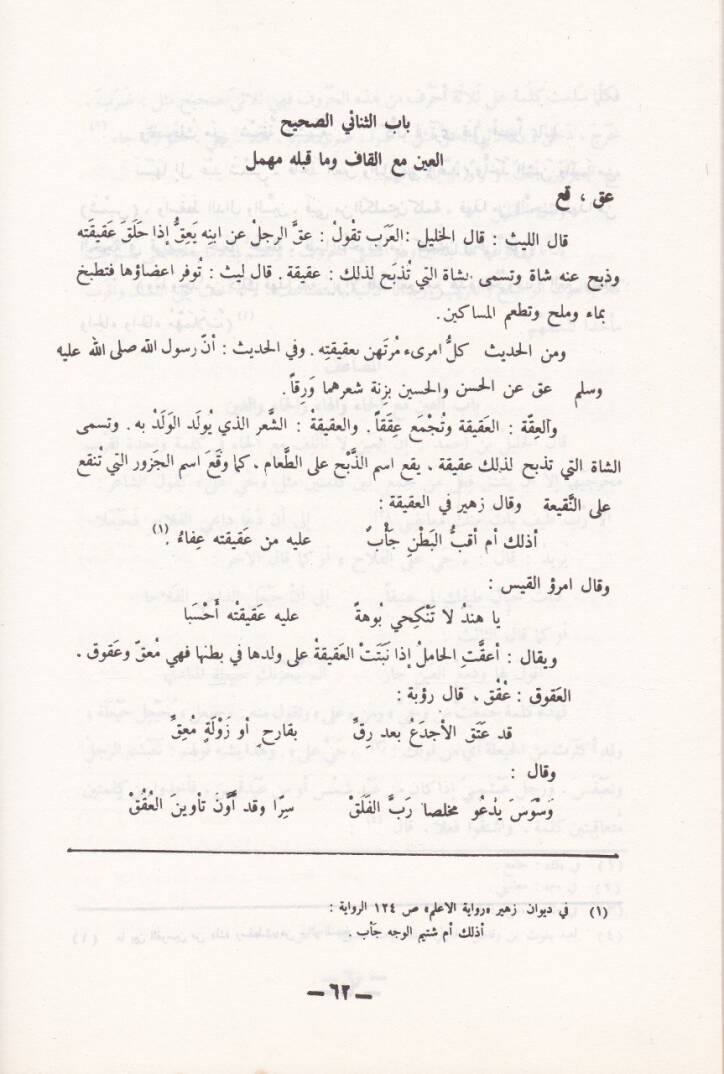 باب الثنائي الصحيح
العين مع القاف وما قبله مهمل
عق ، قع
قال الليث : قال الخليل : العَرَب تقول : عقَّ الرجلُ عن ابنِه يَعِقُّ إذا حَلَقَ عَقيقَته
وذبح عنه شاة وتسمى الشاة التي تُذبَح لذلك : عقيقة . قال ليث : تُوفر اعضاؤها فتطبخ
بماء وملح وتطعم المساكين .
ومن الحديث كلُّ امرىء مُرْتَهن بعقيقتِه . وفي الحديث : أنّ رسول الله صلى الله عليه
وسلم عق عن الحسن والحسين بزِنة شعرهما وَرِقاً .
والعِقّة : العَقيقة وتُجْمَع عِقَقاً . والعقيقةُ : الشَّعر الذي يُولَد الوَلَدْ به . وتسمى
الشاة التي تذبح لذلك عقيقة . يقع اسم الذَّبْح على الطَّعام . كما وقَعَ اسم الجَزور التي تُنقع
على النَّقيعة وقال زهير في العقيقة :
أذلك أم أقبُّ البَطْنِ جَأْبٌ عليه من عَقيقته عِفاءُ .(١)
وقال امرؤ القيس :
يا هندُ لا تَنْكِحي بُوهةً عليه عَقيقتْه أَحْسَبا
ويقال : أعقَّتِ الحاملُ إذا نَبَتَتْ العَقيقةُ على ولدها في بطنها فهي مُعقّ وعَقوق .
العَقوق : عُقُق . قال رؤبة :
قد عَتَق الأجدَعُ بعد رِقِّ بقارحٍ أو زَوْلَةٍ مُعِقِّ
وقال :
وَسْوَسَ يدْعُو مخلصا رَبَّ الفَلَقْ سِرًّا وقد أوَّنَ تأوينَ العُقُقْ
(١) في ديوان زهير «رواية الاعلم» ص ١٢٤ الرواية :
أذلك أم شتيم الوجه جَأب .
– ٦٢ –